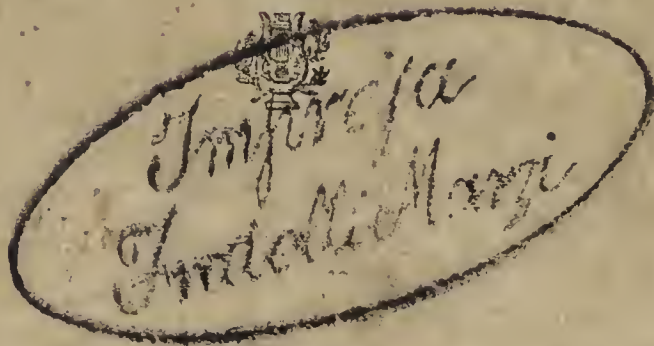 Impresa
Fratelli Marzi